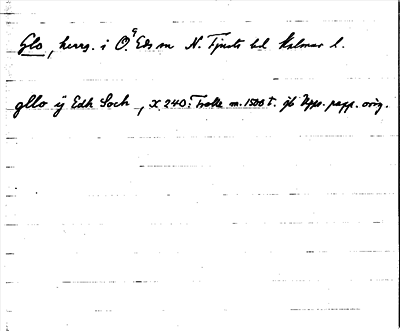 Glo, herrg. i Ö. Eds sn N. Tjusts hd Kalmar l.
gllo ÿ Edh Sock, X 240: Trolle m. 1500 t. jb Upps. papp. orig.